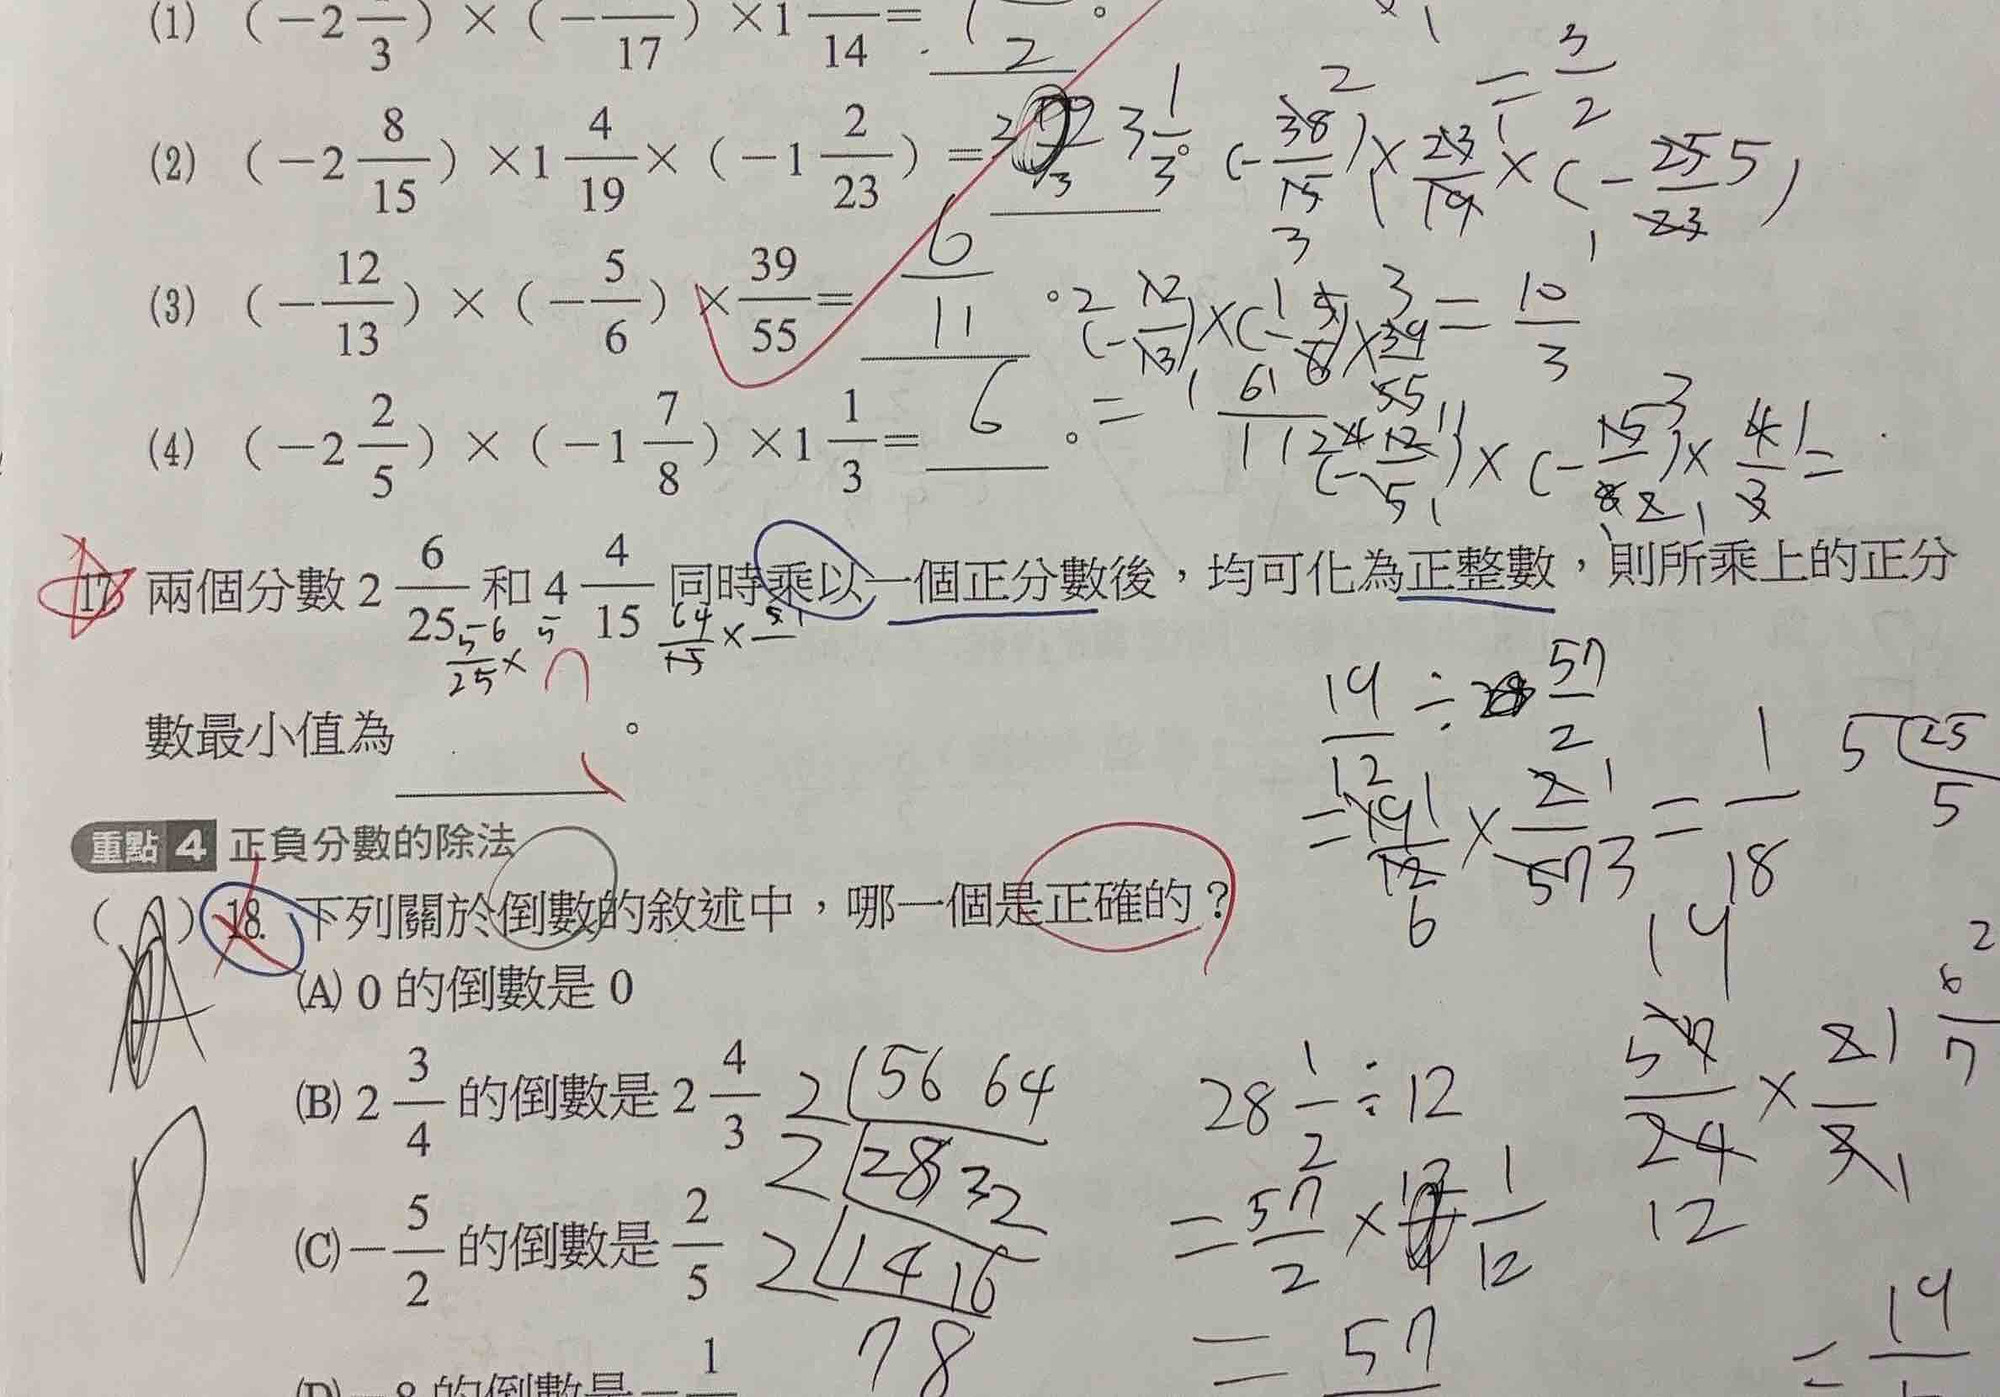 (1) (−2 /3) × (− /17) × 1 /14 = /2 。
= 3/2
(2) (−2 8/15) × 1 4/19 × (−1 2/23) = 3 1/3 。 (−38/15) × 23/19 × (−25/23)
(3) (−12/13) × (−5/6) × 39/55 = 6/11 。 (−12/13) × (−5/6) × 39/55 = 10/3
= 6/11
(4) (−2 2/5) × (−1 7/8) × 1 1/3 = 6 。 (−12/5) × (−15/8) × 4/3 =
17. 兩個分數 2 6/25 和 4 4/15 同時乘以一個正分數後，均可化為正整數，則所乘上的正分
56/25 × 64/15 ×
數最小值為 。
19/12 ÷ 57/2
= 19/12 × 2/57 = 1/18
5 25
5
重點 4 正負分數的除法
( ) 18. 下列關於倒數的敘述中，哪一個是正確的？
(A) 0 的倒數是 0
(B) 2 3/4 的倒數是 2 4/3
(C) −5/2 的倒數是 2/5
(D) −8 的倒數是 −1
D
2 56 64
2 28 32
2 14 16
7 8
28 1/2 ÷ 12
= 57/2 × 1/12
= 57
19
57/24 × 2/3
12
6/7
= 19